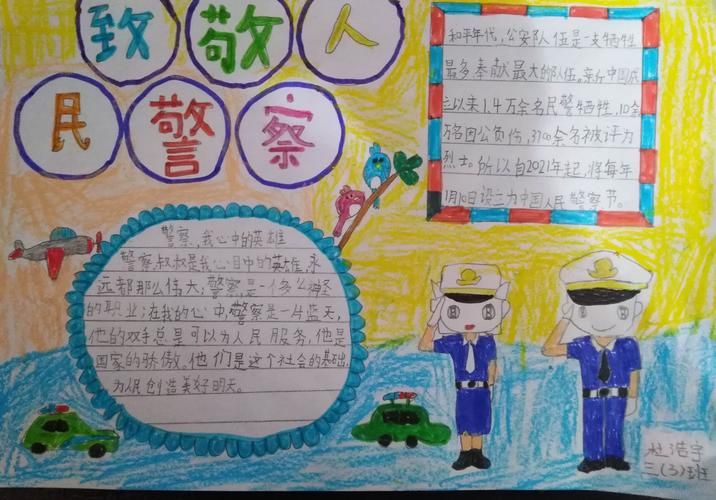 致敬人
民警察
和平年代，公安队伍是一支牺牲
最多奉献最大的队伍。新中国成
立以来1.4万余名民警牺牲，10余
万名因公负伤，3700余名被评为
烈士。所以自2021年起，将每年
1月10日设立为中国人民警察节。
警察，我心中的英雄
警察叔叔是我心目中的英雄，永
远都那么伟大；警察是一个多么神圣
的职业；在我的心中，警察是一片蓝天，
他的双手总是可以为人民服务，他是
国家的骄傲。他们是这个社会的基础，
为人民创造美好明天。
杜浩宇
三(3)班